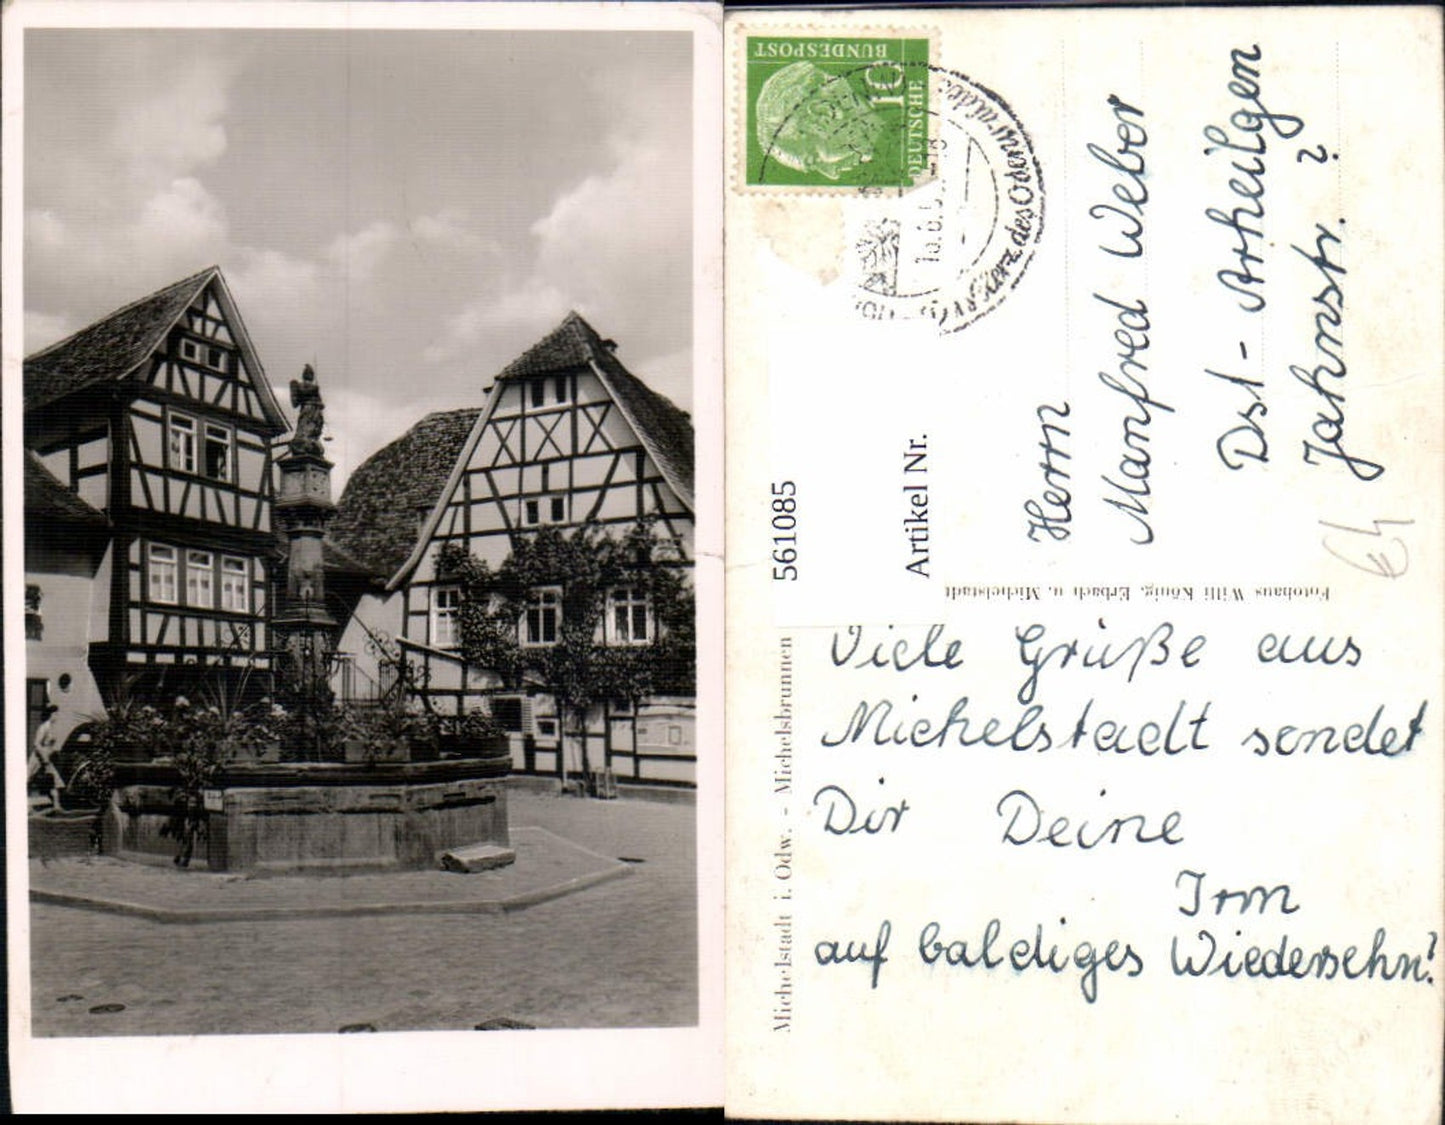 BUNDESPOST
10
DEUTSCHE
des Odenwaldes
Herz des Odenwaldes
Herrn
Manfred Weber
Dst - Arheilgen
Jahnstr. ?
561085
Artikel Nr.
Fotohaus Willi König, Erbach u. Michelstadt
Michelstadt i. Odw. - Michelsbrunnen
Viele Grüße aus
Michelstadt sendet
Dir Deine
Irm
auf baldiges Wiedersehn!